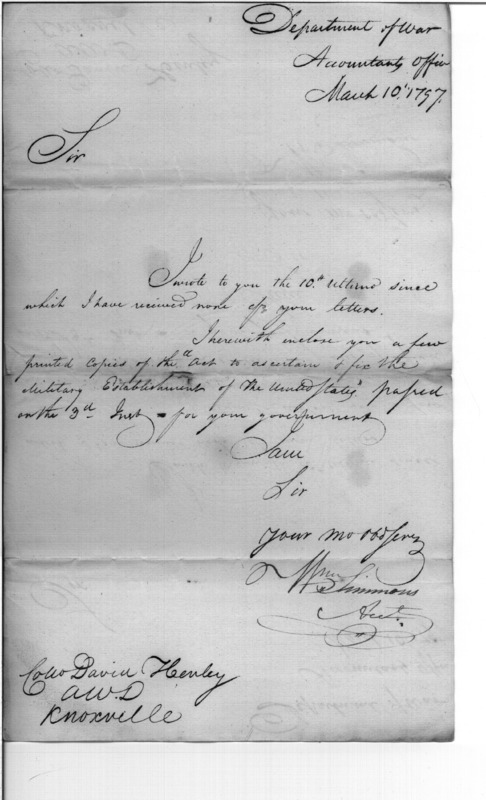 Department of War
Accountants Office
March 10th 1797.
Sir
I wrote to you the 10th Ultimo since
which I have received none of your letters.
I herewith inclose you a few
printed Copies of the "Act to ascertain & fix the
Military Establishment of the United States" passed
on the 3d Inst - for your government
I am
Sir
your mo Ob Serv
Wm Simmons
Acct.
Colo David Henley
A.W.D
Knoxville